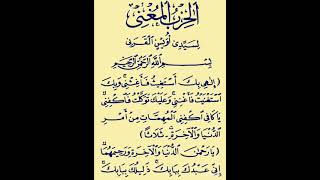 الحِزْبُ الْمُغْنِى
لِسَيِّدِى أُوَيْسٍ الْقَرَنِى
بِسْمِ اللَّهِ الرَّحْمٰنِ الرَّحِيْمِ
﴿ إِلٰهِى بِكَ أَسْتَغِيْثُ فَأَغِثْنِىْ ۞ وَبِكَ
اسْتَغْنَيْتُ فَأَغْنِنِىْ ۞ وَعَلَيْكَ تَوَكَّلْتُ فَاكْفِنِىْ ۞
يَا كَافِى اكْفِنِى الْمُهِمَّاتِ مِنْ أَمْرِ
الدُّنْيَا وَالْآخِرَةِ ۞ ثَلَاثًا ﴾
﴿ يَا رَحْمٰنَ الدُّنْيَا وَالْآخِرَةِ وَرَحِيْمَهُمَا ۞
إِنِّى عَبْدُكَ بِبَابِكَ ۞ ذَلِيْلُكَ بِبَابِكَ ۞